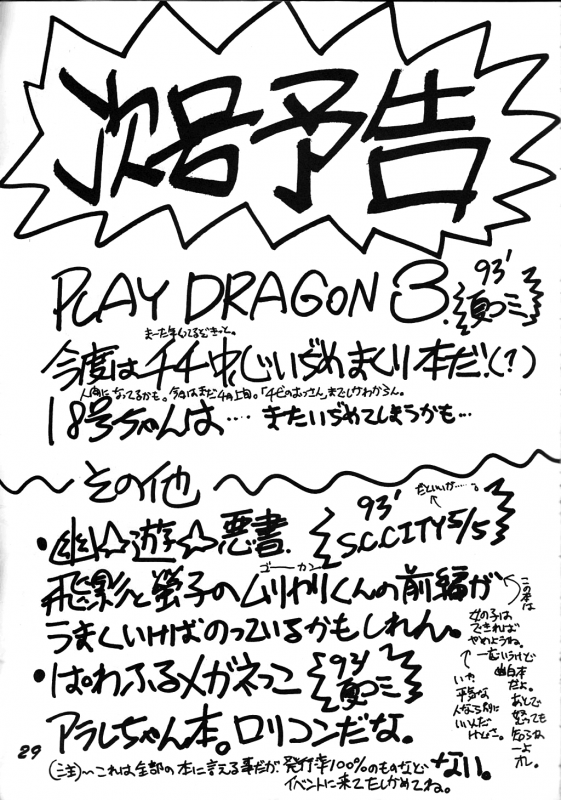 次号予告
PLAY DRAGON 3. 93' 夏コミ
今度はチチ中心いぢめまくり本だ!(?)
人間になってるかも。今はまだ4月上旬。「チビのおっさん」までしかわからん。
18号ちゃんは…‥またいぢめてしまうかも…
その他
だといいが……。
・幽☆遊☆悪書. 93' S.C.CITY 5/5
ゴーカン
飛影と螢子のムリヤリくんの前編が
うまくいけばのっているかもしれん。
この本は
女の子は
できれば
やめようね。
一応いうけど
幽白本
だよ。
あとで
怒っても
知らねーよ
オレ。
いや
平気な
人なら別に
いいんだ
けどさ。
・ぱわふるメガネっこ 93' 夏コミ
アラレちゃん本。ロリコンだな。
(注)〜これは全部の本に言える事だが、発行率100%のものなどない。
イベントに来てたしかめてね。
29